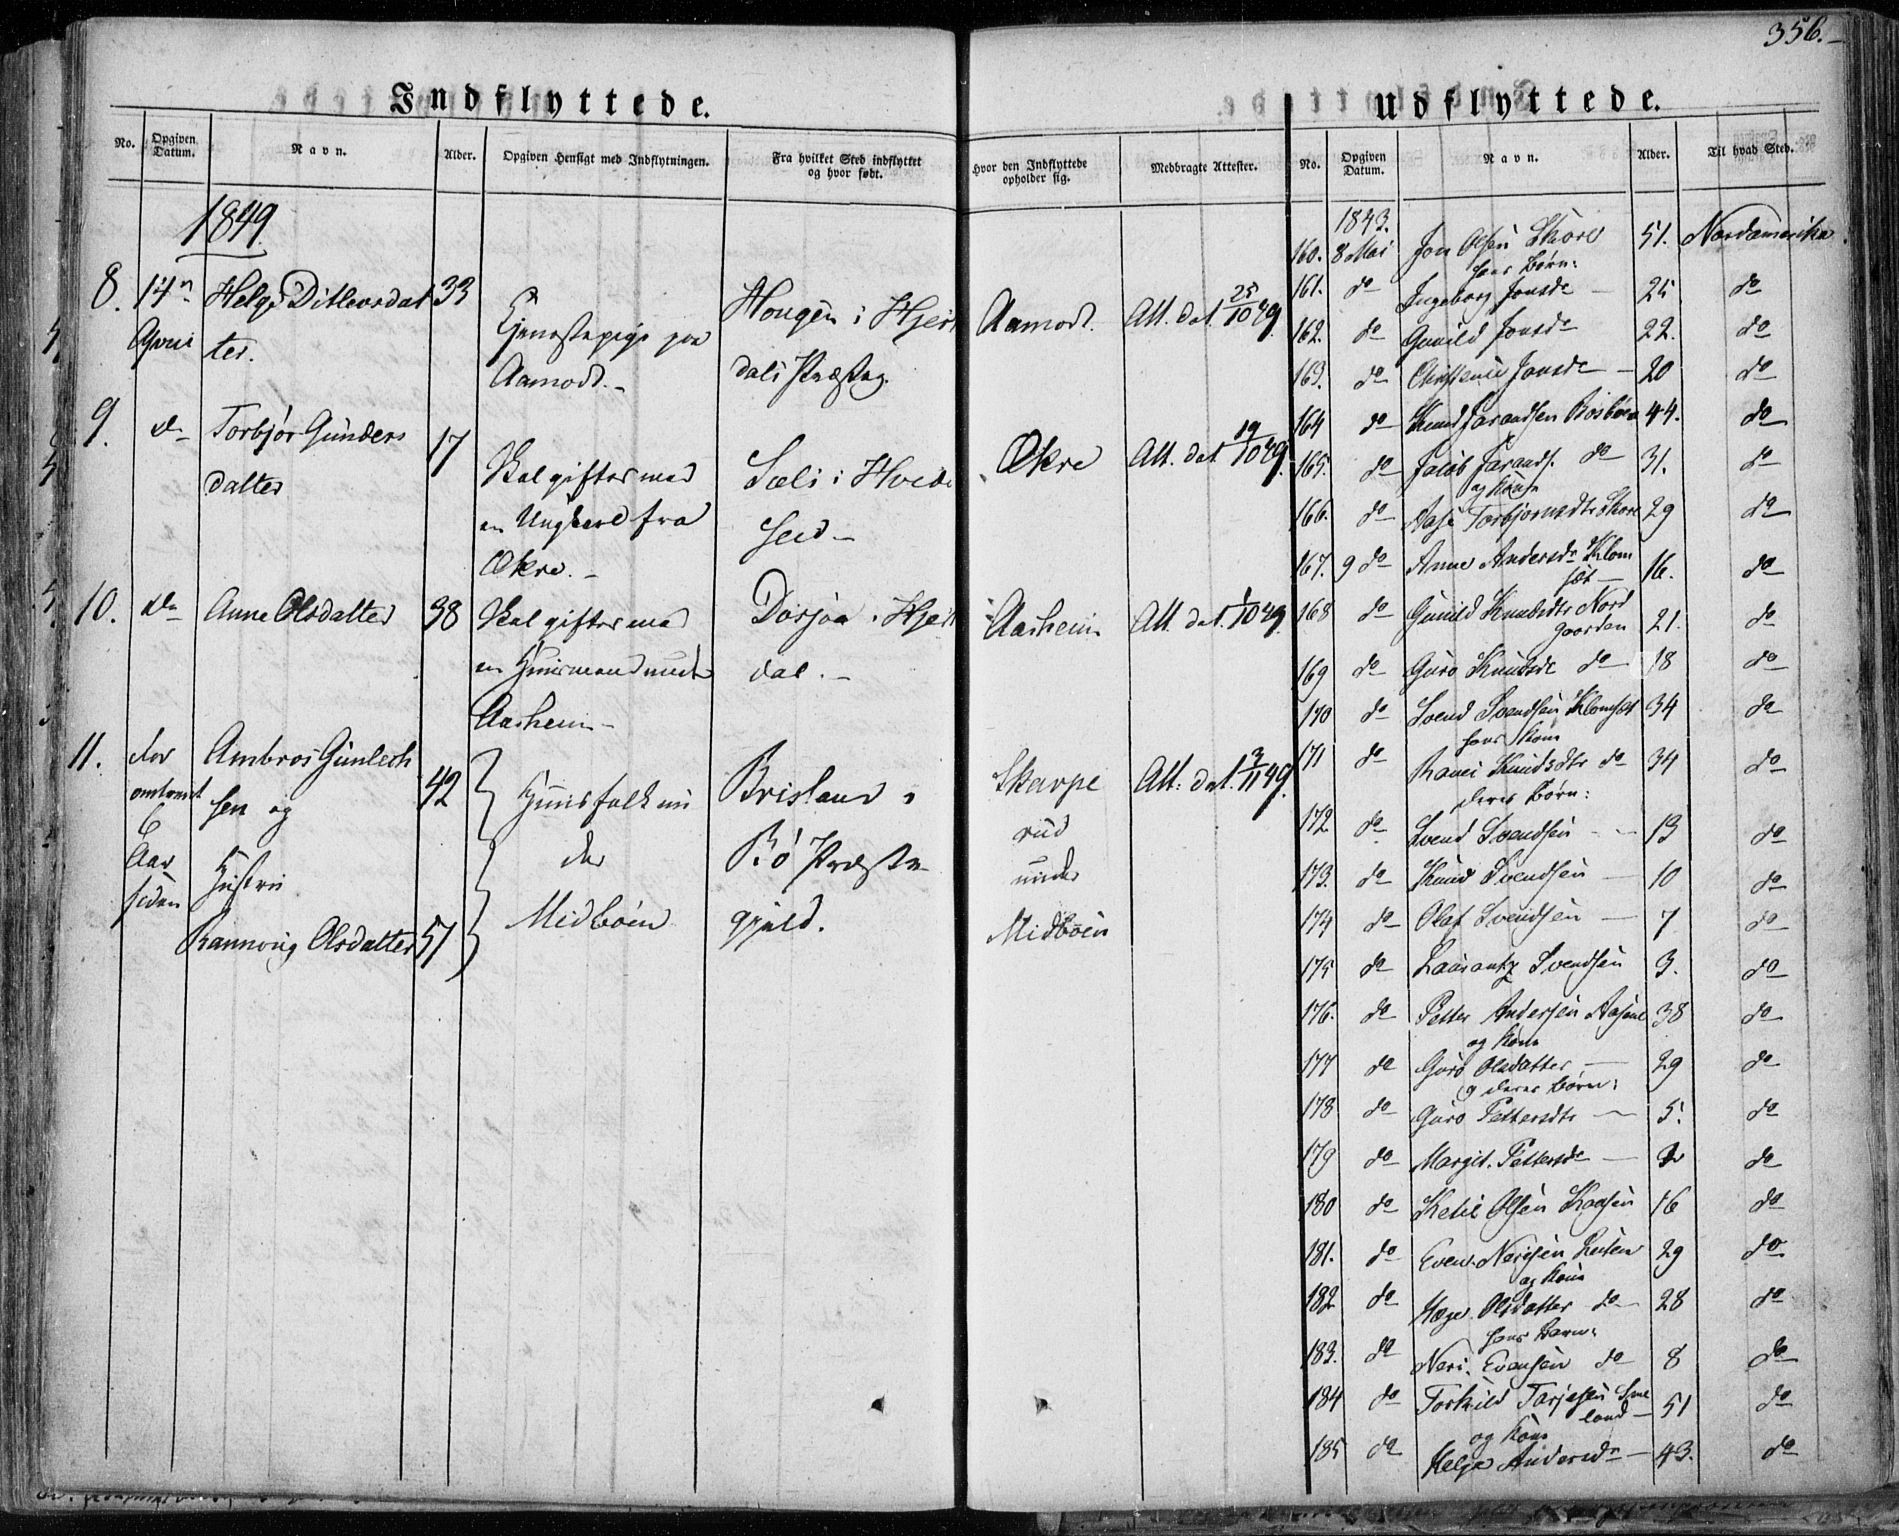 356.
Indflyttede.
No. Opgiven Datum. Navn. Alder. Opgiven Hensigt med Indflytningen. Fra hvilket Sted indflyttet og hvor født. Hvor den Indflyttede opholder sig. Medbragte Attester.
1849.
8. 14n Helge Ditlevsdat 33 Hougen i Hjert Aamodt. Att. dat. 25/10 49.
April ter. Tjenestepige paa
Aamodt. dals Præsteg.
9. do Torbjør Gunders 17 Skal giftes med Sæli i Hvide Økre Att. dat. 19/10 49.
datter en Ungkarl fra seid
Økre.
10. do Anne Olsdatter 38 Skal giftes med Dorsjøa i Hjert Aasheim Att. dat. 1/10 49.
en Huusmand under dal.
Aasheim
11. for Ambros Gunleik 42 Huusfolk un Brisland i Skarpe Att: dat. 3/11 49.
omtrent sen og der Bø Præste rud
6 Aar Hustru Midbøen gjeld. under
siden Rannveig Olsdatter 51 Midbøen
Udflyttede.
No. Opgiven Datum. Navn. Alder. Til hvad Sted.
1843.
160. 8 Mai Jon Olsen Skore 51. Nordamerika.
hans Børn:
161. do Ingeborg Jonsdr 25 do
162. do Gunild Jonsdr 22. do
163. do Christence Jonsdr 20 do
164 do Knud Jarandsen Bosbøen 44. do
165. do Jacob Jarands. do 31. do
og Kone
166. do Aase Torbjornsdtr Skore 29 do
167. 9 do Anne Andersdr Klom
set 16. do
168 do Gunild Knudsdtr Nord
gaarden 21. do
169 do Guro Knudsdr do 18 do
170 do Svend Svendsen Klomset 34 do
hans Kone
171 do Ranei Knudsdtr do 34 do
deres Børn:
172 do Svend Svendsen 13 do
173. do Knud Svendsen 10 do
174 do Olaf Svendsen 7 do
175 do Laurantz Svendsen 3. do
176. do Petter Andersen Aasene 38 do
og Kone
177 do Guro Olsdatter 29 do
og deres Børn:
178 do Guro Pettersdtr 5. do
179 do Margit Pettersdr 2 do
180 do Ketil Olsen Kaasen 16 do
181. do Even Nerisen 29 do
og Kone
182 do Hæge Olsdatter do 28 do
hans Barn:
183. do Neri Evensen do 8 do
184 do Torkild Tarjesen Sme
land 51 do
og Kone
185 do Helge Andersdr 43. do